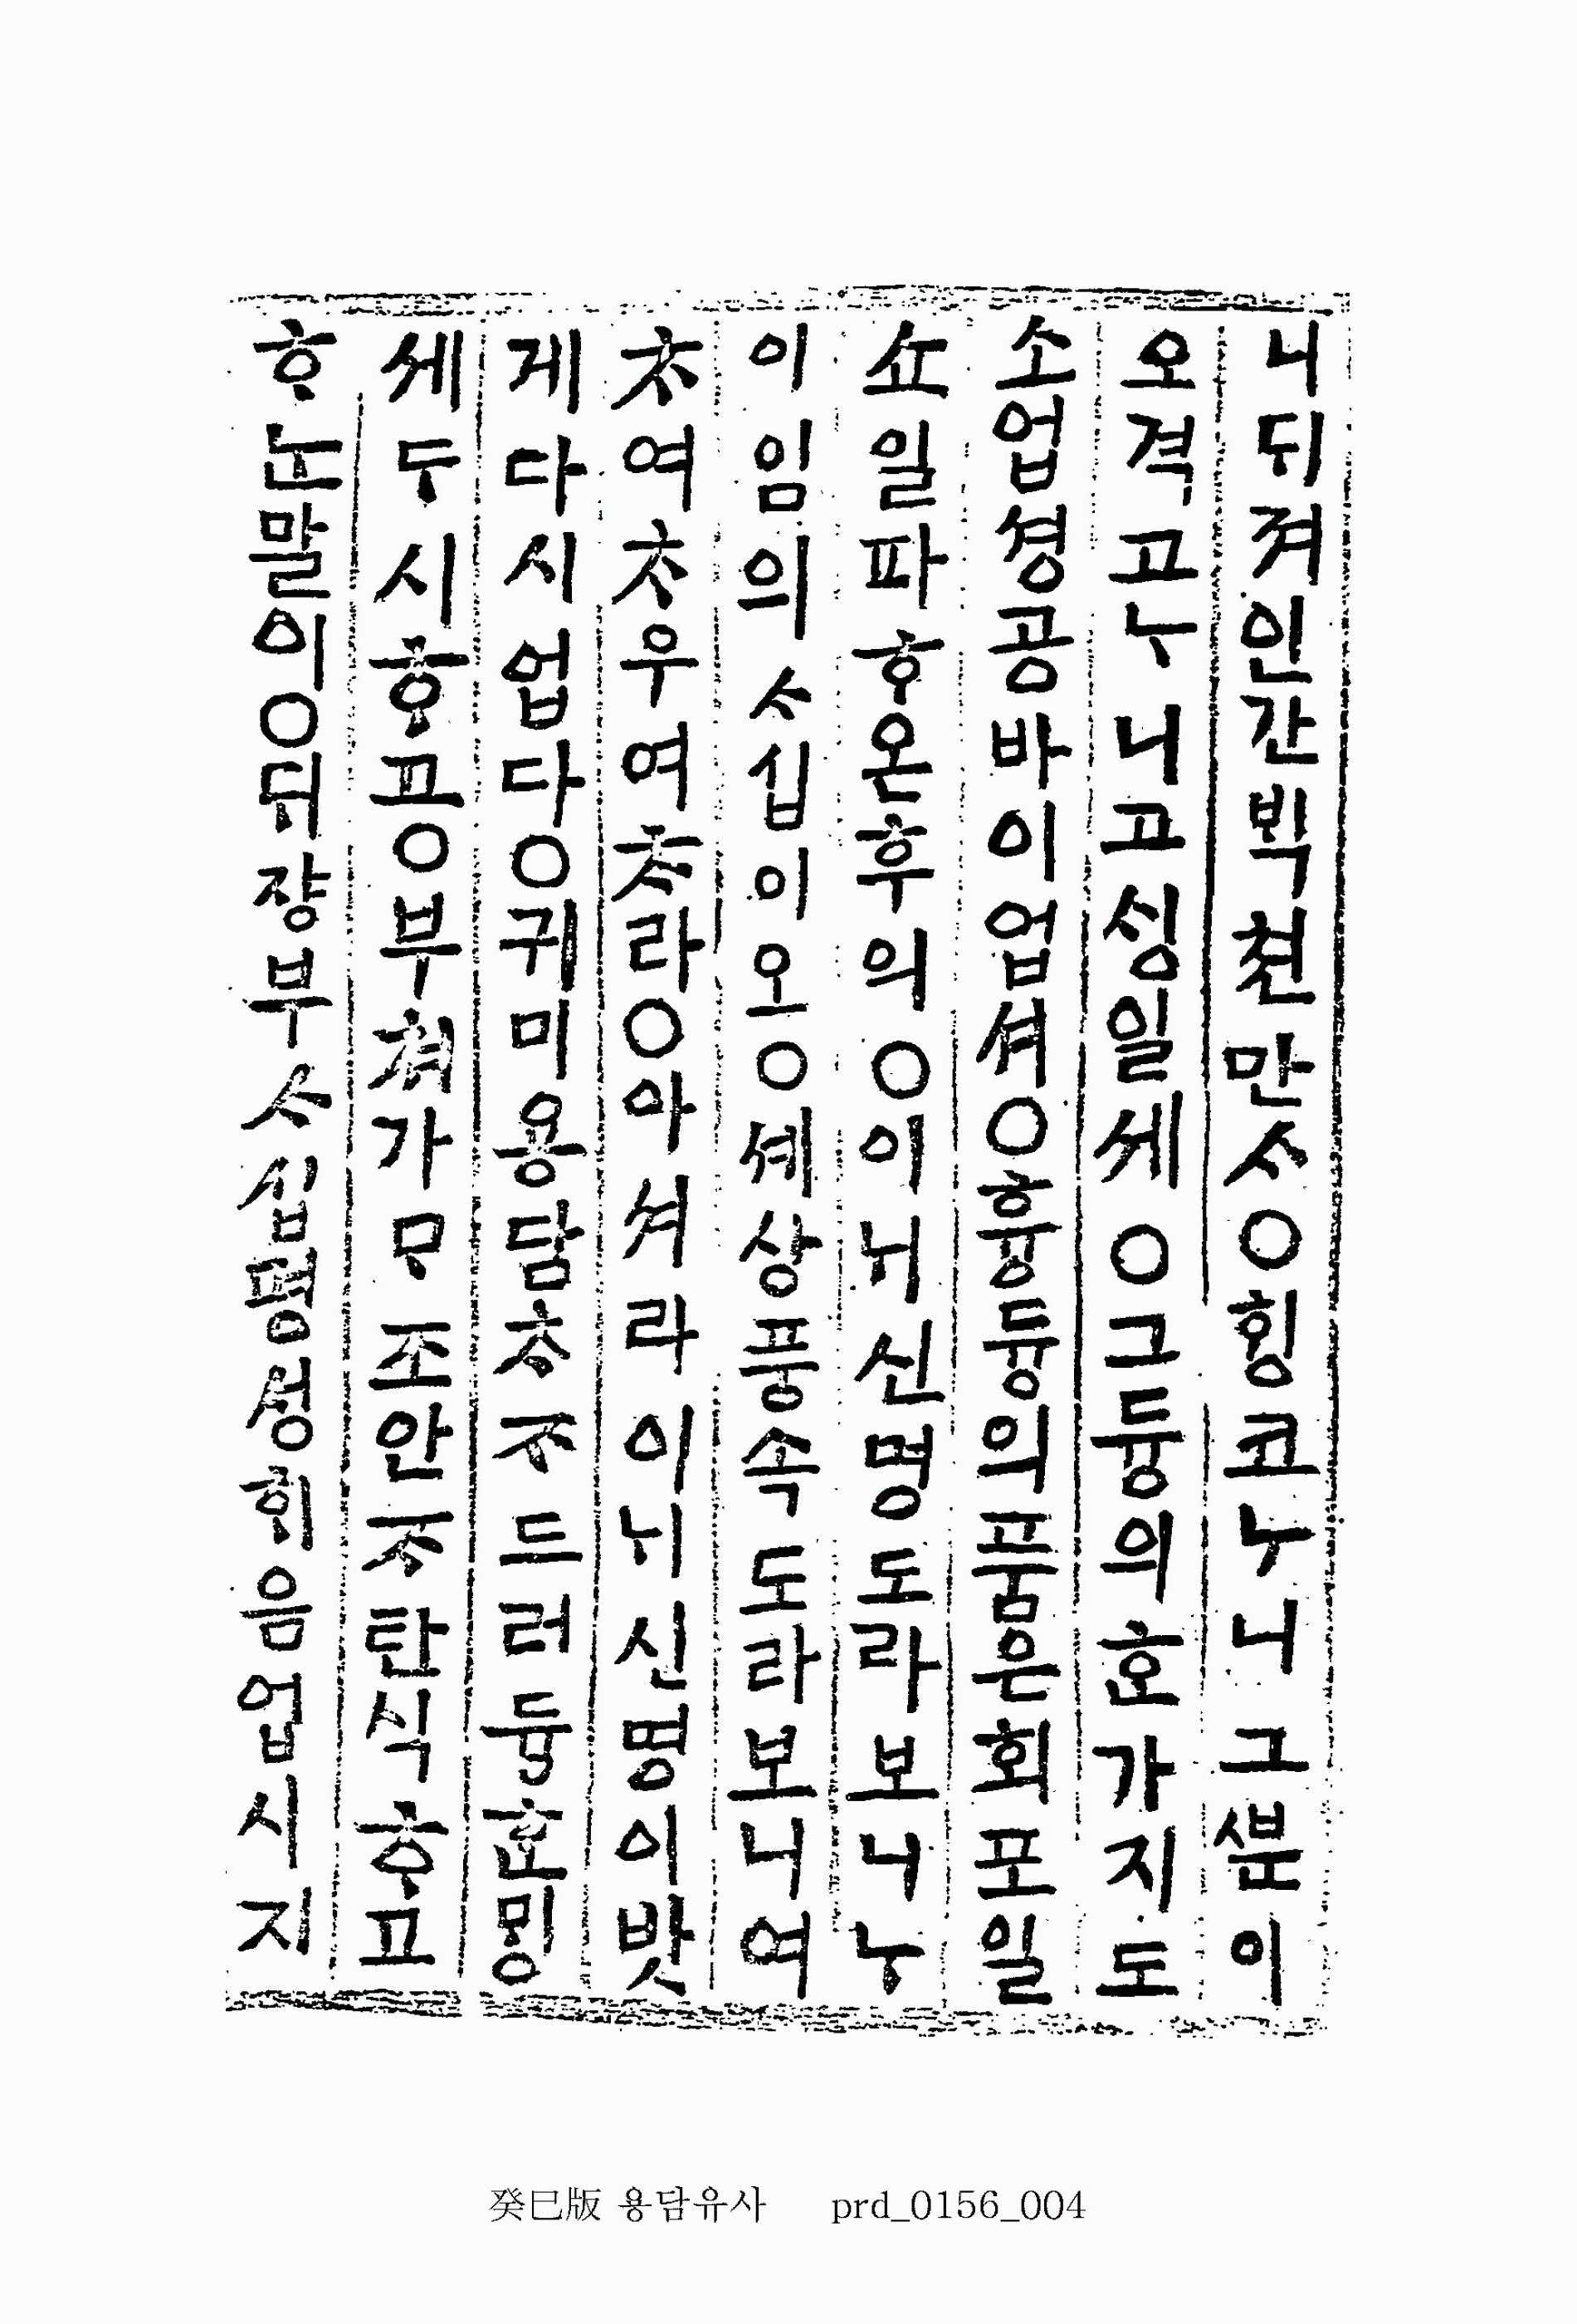 니ᄃᆡ져인간ᄇᆡᆨ쳔만ᄉᆞ○ᄒᆡᆼ코ᄂᆞ니그ᄲᅮᆫ이
오격고ᄂᆞ니고ᄉᆡᆼ일세○그듕의ᄒᆞᆫ가지도
소업셩공바이업셔○흉듕의품은회포일
쇼일파ᄒᆞ온후의○이ᄂᆡ신명도라보니ᄂᆞ
이임의ᄉᆞ십이오○셰상풍속도라보니여
ᄎᆞ여ᄎᆞ우여ᄎᆞ라○아셔라이ᄂᆡ신명이밧
게다시업다○귀미용담ᄎᆞᄌᆞ드러듕ᄒᆞᆫᄆᆡᆼ
세두시ᄒᆞ고○부쳐가ᄆᆞ조안ᄌᆞ탄식ᄒᆞ고
ᄒᆞᄂᆞᆫ말이○ᄃᆡ쟝부ᄉᆞ십평성ᄒᆡ음업시지
癸巳版 용담유사 prd_0156_004